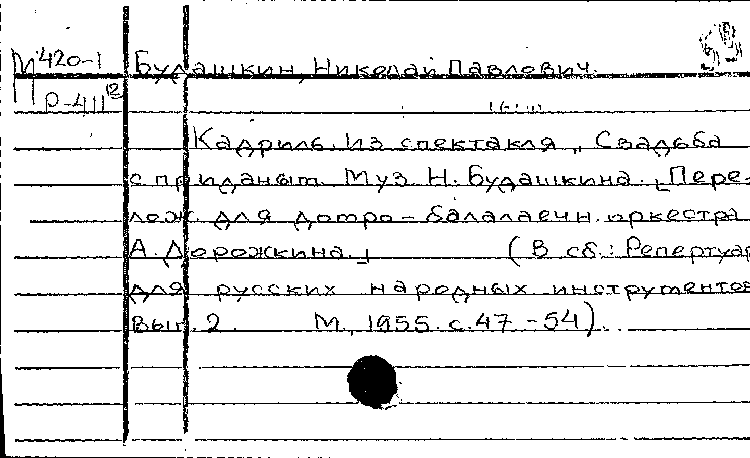 М 420-1 Будашкин, Николай Павлович.
П Р-411
Кадриль. Из спектакля „Свадьба
с приданым. Муз. Н. Будашкина. [Пере-
лож. для домро-балалаечн. оркестра
А. Дорожкина.] (В сб.: Репертуар
для русских народных инструментов
Вып. 2. М., 1955. с. 47-54).